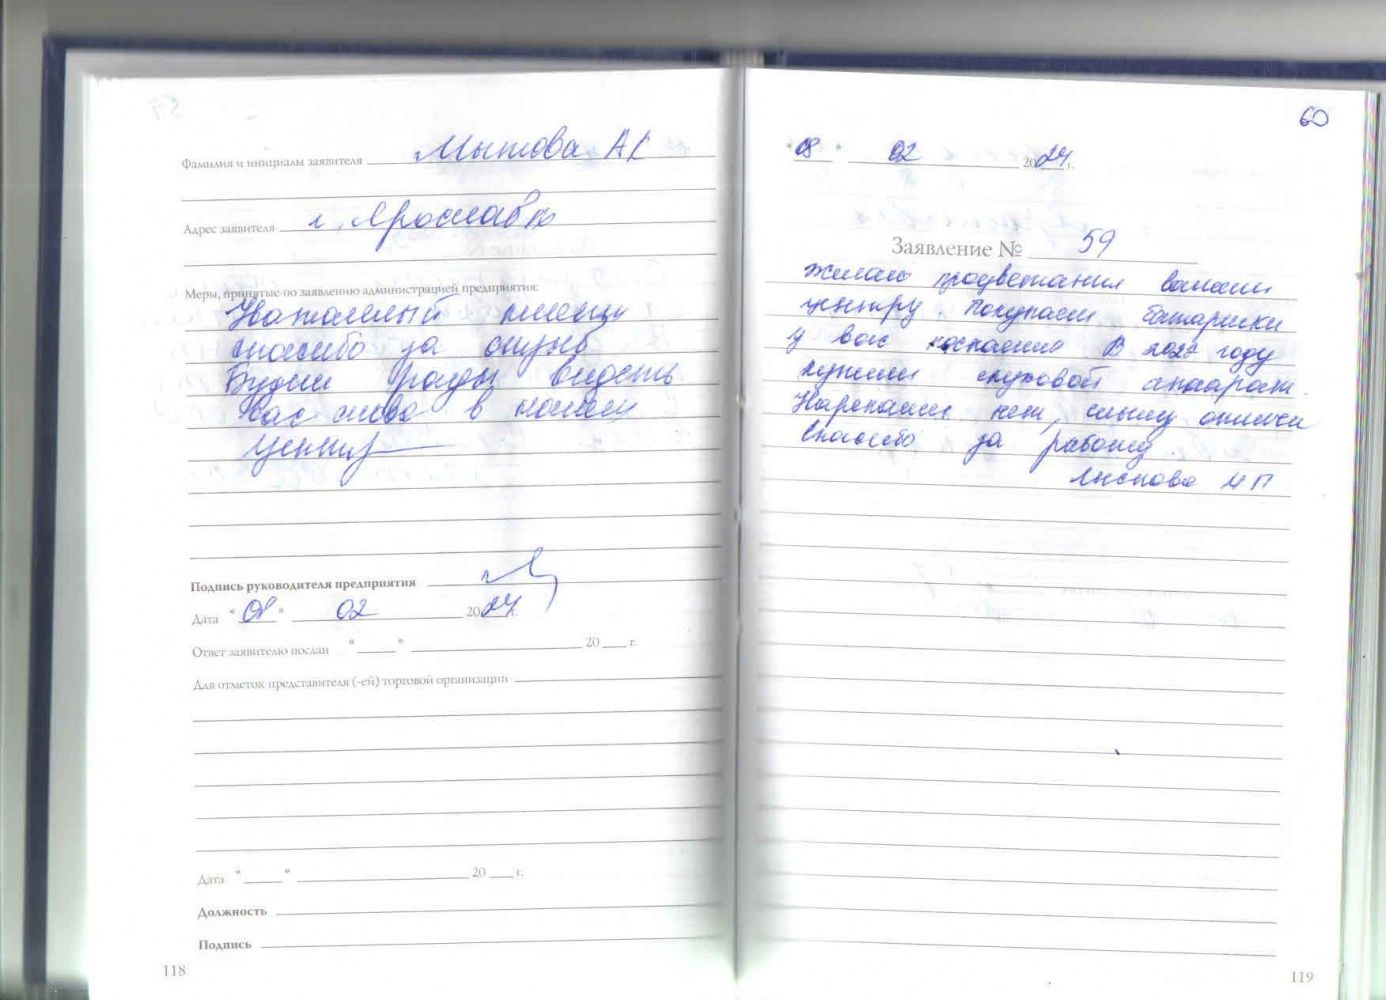 Фамилия и инициалы заявителя Мытова А
Адрес заявителя г. Ярославль
Меры, принятые по заявлению администрацией предприятия:
Уважаемый клиент
спасибо за отзыв
Будем рады видеть
Вас снова в нашем
центре
Подпись руководителя предприятия
Дата "08" 02 2024 г.
Ответ заявителю послан " " 20 г.
Для отметок представителя (-ей) торговой организации
Дата " " 20 г.
Должность
Подпись
118
60
"08" 02 2024 г.
Заявление № 59
Желаю процветания вашему
центру. Покупаем батарейки
у вас В году
купили слуховой аппарат.
Нареканий нет, слышу отлично
Спасибо за работу
М П
119